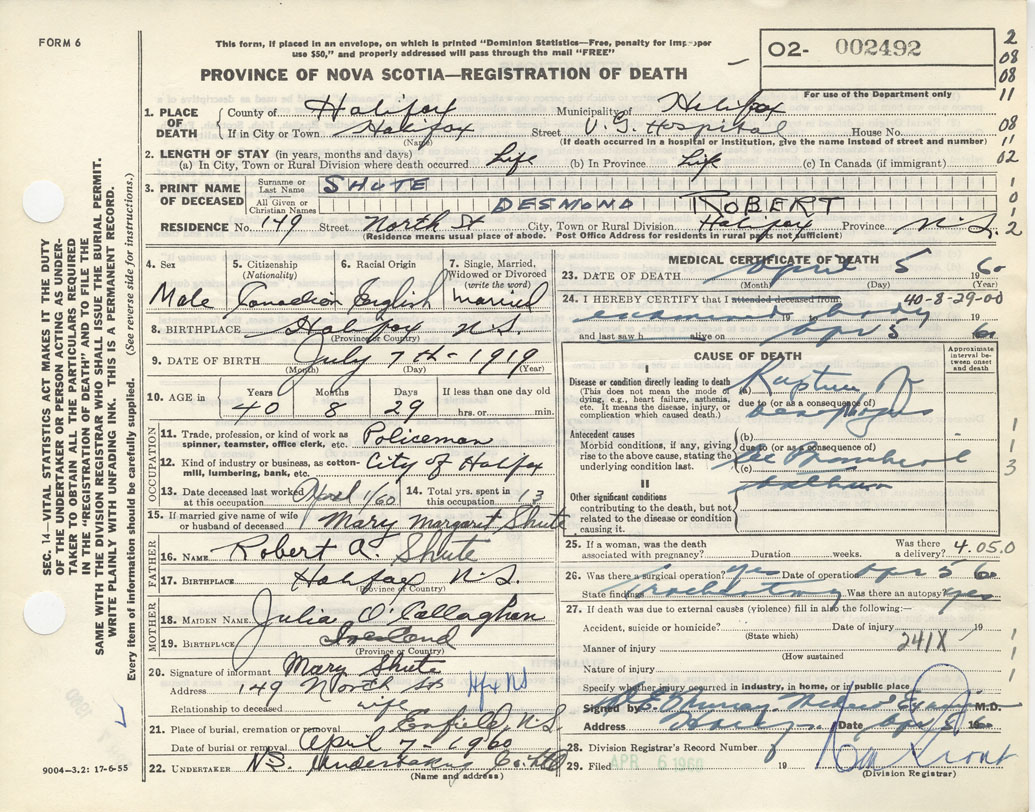 FORM 6
This form, if placed in an envelope, on which is printed "Dominion Statistics—Free, penalty for improper
use $50," and properly addressed will pass through the mail "FREE"
PROVINCE OF NOVA SCOTIA—REGISTRATION OF DEATH
O2- 002492
For use of the Department only
2
08
08
11
08
11
02
1
0
2
1. PLACE OF DEATH County of Halifax Municipality of Halifax
If in City or Town Halifax Street V. G. Hospital House No.
(Name) (If death occurred in a hospital or institution, give the name instead of street and number)
2. LENGTH OF STAY (in years, months and days)
(a) In City, Town or Rural Division where death occurred Life (b) In Province Life (c) In Canada (if immigrant)
3. PRINT NAME OF DECEASED Surname or Last Name SHUTE
All Given or Christian Names DESMOND ROBERT
RESIDENCE No. 149 Street North St City, Town or Rural Division Halifax Province N.S.
(Residence means usual place of abode. Post Office Address for residents in rural parts not sufficient)
4. Sex Male
5. Citizenship (Nationality) Canadian
6. Racial Origin English
7. Single, Married, Widowed or Divorced (write the word) Married
8. BIRTHPLACE Halifax N.S.
(Province or Country)
9. DATE OF BIRTH July 7th - 1919
(Month) (Day) (Year)
10. AGE in Years 40 Months 8 Days 29 If less than one day old hrs. or min.
OCCUPATION
11. Trade, profession, or kind of work as spinner, teamster, office clerk, etc. Policeman
12. Kind of industry or business, as cotton-mill, lumbering, bank, etc. City of Halifax
13. Date deceased last worked at this occupation April 1/60 14. Total yrs. spent in this occupation 13
15. If married give name of wife or husband of deceased Mary Margaret Shute
FATHER
16. NAME Robert A. Shute
17. BIRTHPLACE Halifax N.S.
(Province or Country)
MOTHER
18. MAIDEN NAME Julia O'Callaghan
19. BIRTHPLACE Ireland
(Province or Country)
20. Signature of informant Mary Shute
Address 149 North St Hfx NS
Relationship to deceased wife
21. Place of burial, cremation or removal Enfield N.S.
Date of burial or removal April 7 - 1960
22. UNDERTAKER N.S. Undertaking Co. Ltd
(Name and address)
MEDICAL CERTIFICATE OF DEATH
23. DATE OF DEATH April 5 1960
(Month) (Day) (Year)
24. I HEREBY CERTIFY that I attended deceased from 40-8-29-00
examined body 19 19
and last saw h alive on Apr 5 60
CAUSE OF DEATH
Approximate interval between onset and death
I
Disease or condition directly leading to death
(This does not mean the mode of dying, e.g., heart failure, asthenia, etc. It means the disease, injury, or complication which caused death.)
(a) Rupture of
due to (or as a consequence of)
oesophagus
Antecedent causes
Morbid conditions, if any, giving rise to the above cause, stating the underlying condition last.
(b)
due to (or as a consequence of)
(c) Bronchial
asthma
II
Other significant conditions
contributing to the death, but not related to the disease or condition causing it.
1
1
3
25. If a woman, was the death associated with pregnancy? Duration weeks. Was there a delivery? 4.05.0
26. Was there a surgical operation? yes Date of operation Apr 5 60
State findings Tracheotomy Was there an autopsy? yes
27. If death was due to external causes (violence) fill in also the following:—
Accident, suicide or homicide? Date of injury 19
(State which)
Manner of injury 241X
(How sustained)
Nature of injury
Specify whether injury occurred in industry, in home, or in public place
1
1
1
Signed by Murray M.D.
Address Date Apr 5 1960
28. Division Registrar's Record Number
29. Filed APR 6 1960 19
(Division Registrar)
SEC. 14—VITAL STATISTICS ACT MAKES IT THE DUTY
OF THE UNDERTAKER OR PERSON ACTING AS UNDER-
TAKER TO OBTAIN ALL THE PARTICULARS REQUIRED
IN THE "REGISTRATION OF DEATH" AND TO FILE THE
SAME WITH THE DIVISION REGISTRAR WHO SHALL ISSUE THE BURIAL PERMIT.
WRITE PLAINLY WITH UNFADING INK. THIS IS A PERMANENT RECORD.
Every item of information should be carefully supplied. (See reverse side for instructions.)
9004—3.2: 17-6-55